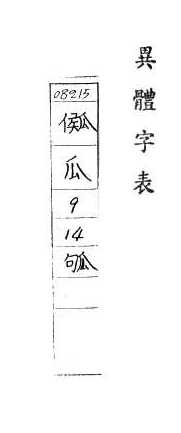 異體字表
08215
瓜
9
14